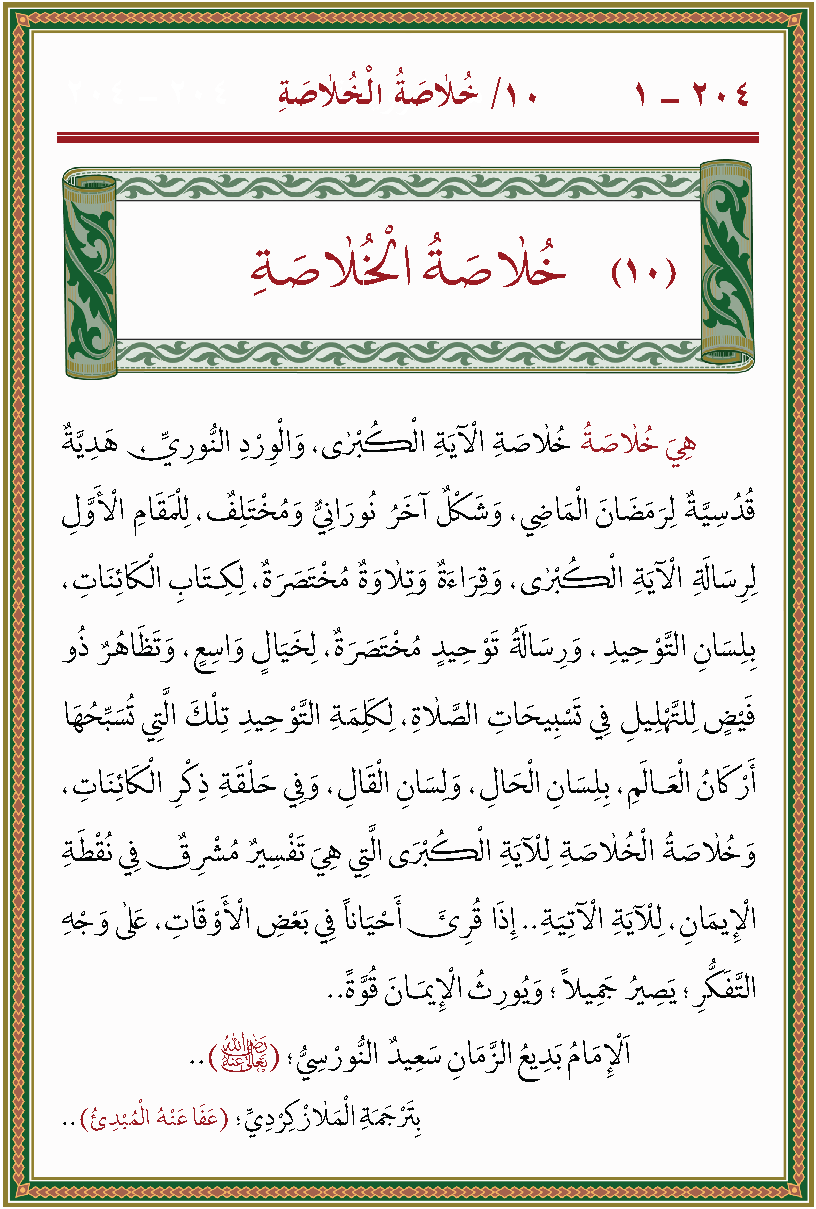 ٢٠٤ – ١ ١٠/ خُلَاصَةُ الْخُلَاصَةِ
(١٠) خُلَاصَةُ الْخُلَاصَةِ
هِيَ خُلَاصَةُ خُلَاصَةِ الْآيَةِ الْكُبْرٰى، وَالْوِرْدِ النُّورِيِّ هَدِيَّةٌ
قُدُسِيَّةٌ لِرَمَضَانَ الْمَاضِي، وَشَكْلٌ آخَرُ نُورَانِيٌّ وَمُخْتَلِفٌ، لِلْمَقَامِ الْأَوَّلِ
لِرِسَالَةِ الْآيَةِ الْكُبْرٰى، وَقِرَاءَةٌ وَتِلَاوَةٌ مُخْتَصَرَةٌ، لِكِتَابِ الْكَائِنَاتِ،
بِلِسَانِ التَّوْحِيدِ، وَرِسَالَةُ تَوْحِيدٍ مُخْتَصَرَةٌ، لِخَيَالٍ وَاسِعٍ، وَتَظَاهُرٌ ذُو
فَيْضٍ لِلتَّهْلِيلِ فِي تَسْبِيحَاتِ الصَّلَاةِ، لِكَلِمَةِ التَّوْحِيدِ تِلْكَ الَّتِي تُسَبِّحُهَا
أَرْكَانُ الْعَالَمِ، بِلِسَانِ الْحَالِ، وَلِسَانِ الْقَالِ، وَفِي حَلْقَةِ ذِكْرِ الْكَائِنَاتِ،
وَخُلَاصَةُ الْخُلَاصَةِ لِلْآيَةِ الْكُبْرَى الَّتِي هِيَ تَفْسِيرٌ مُشْرِقٌ فِي نُقْطَةِ
الْإِيمَانِ، لِلْآيَةِ الْآتِيَةِ.. إِذَا قُرِئَ أَحْيَاناً فِي بَعْضِ الْأَوْقَاتِ، عَلٰى وَجْهِ
التَّفَكُّرِ؛ يَصِيرُ جَمِيلاً؛ وَيُورِثُ الْإِيمَانَ قُوَّةً..
اَلْإِمَامُ بَدِيعُ الزَّمَانِ سَعِيدٌ النُّورْسِيُّ؛ (رَضِيَ اللهُ تَعَالٰى عَنْهُ)..
بِتَرْجَمَةِ الْمَلَازْكِرْدِيِّ؛ (عَفَا عَنْهُ الْمُبْدِئُ)..